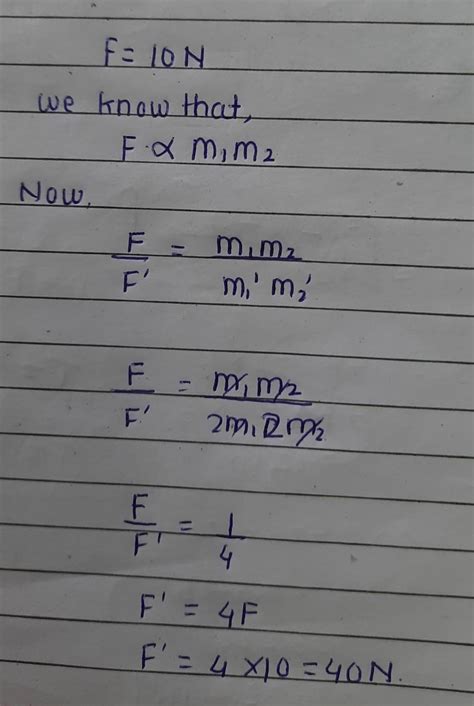 F = 10N
we know that,
F ∝ m₁m₂
Now,
F/F' = m₁m₂/m₁'m₂'
F/F' = m₁m₂/2m₁2m₂
F/F' = 1/4
F' = 4F
F' = 4 × 10 = 40N.